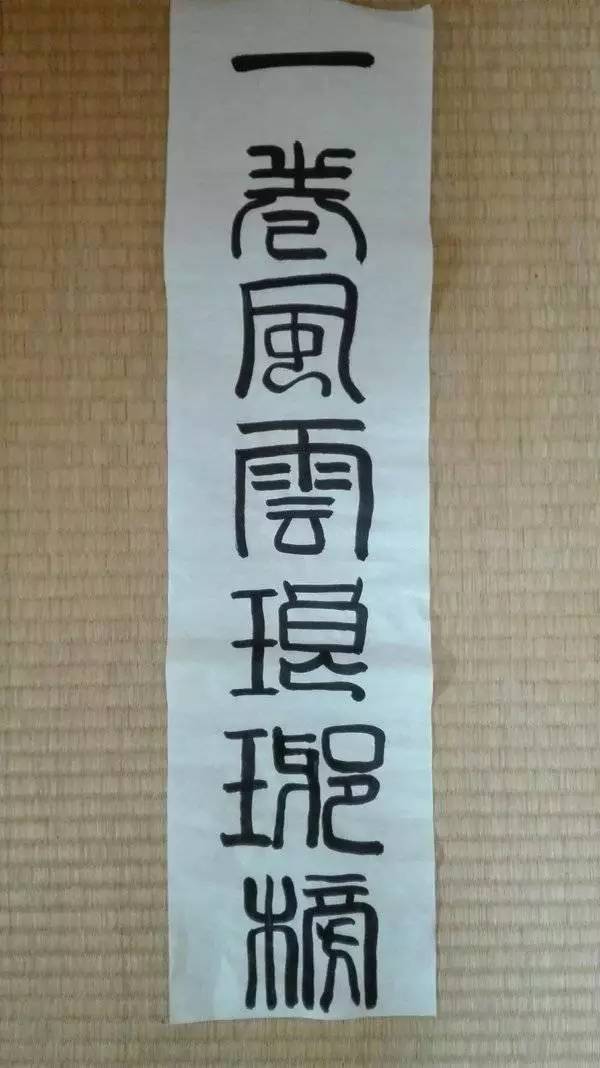 一卷風雲琅琊榜